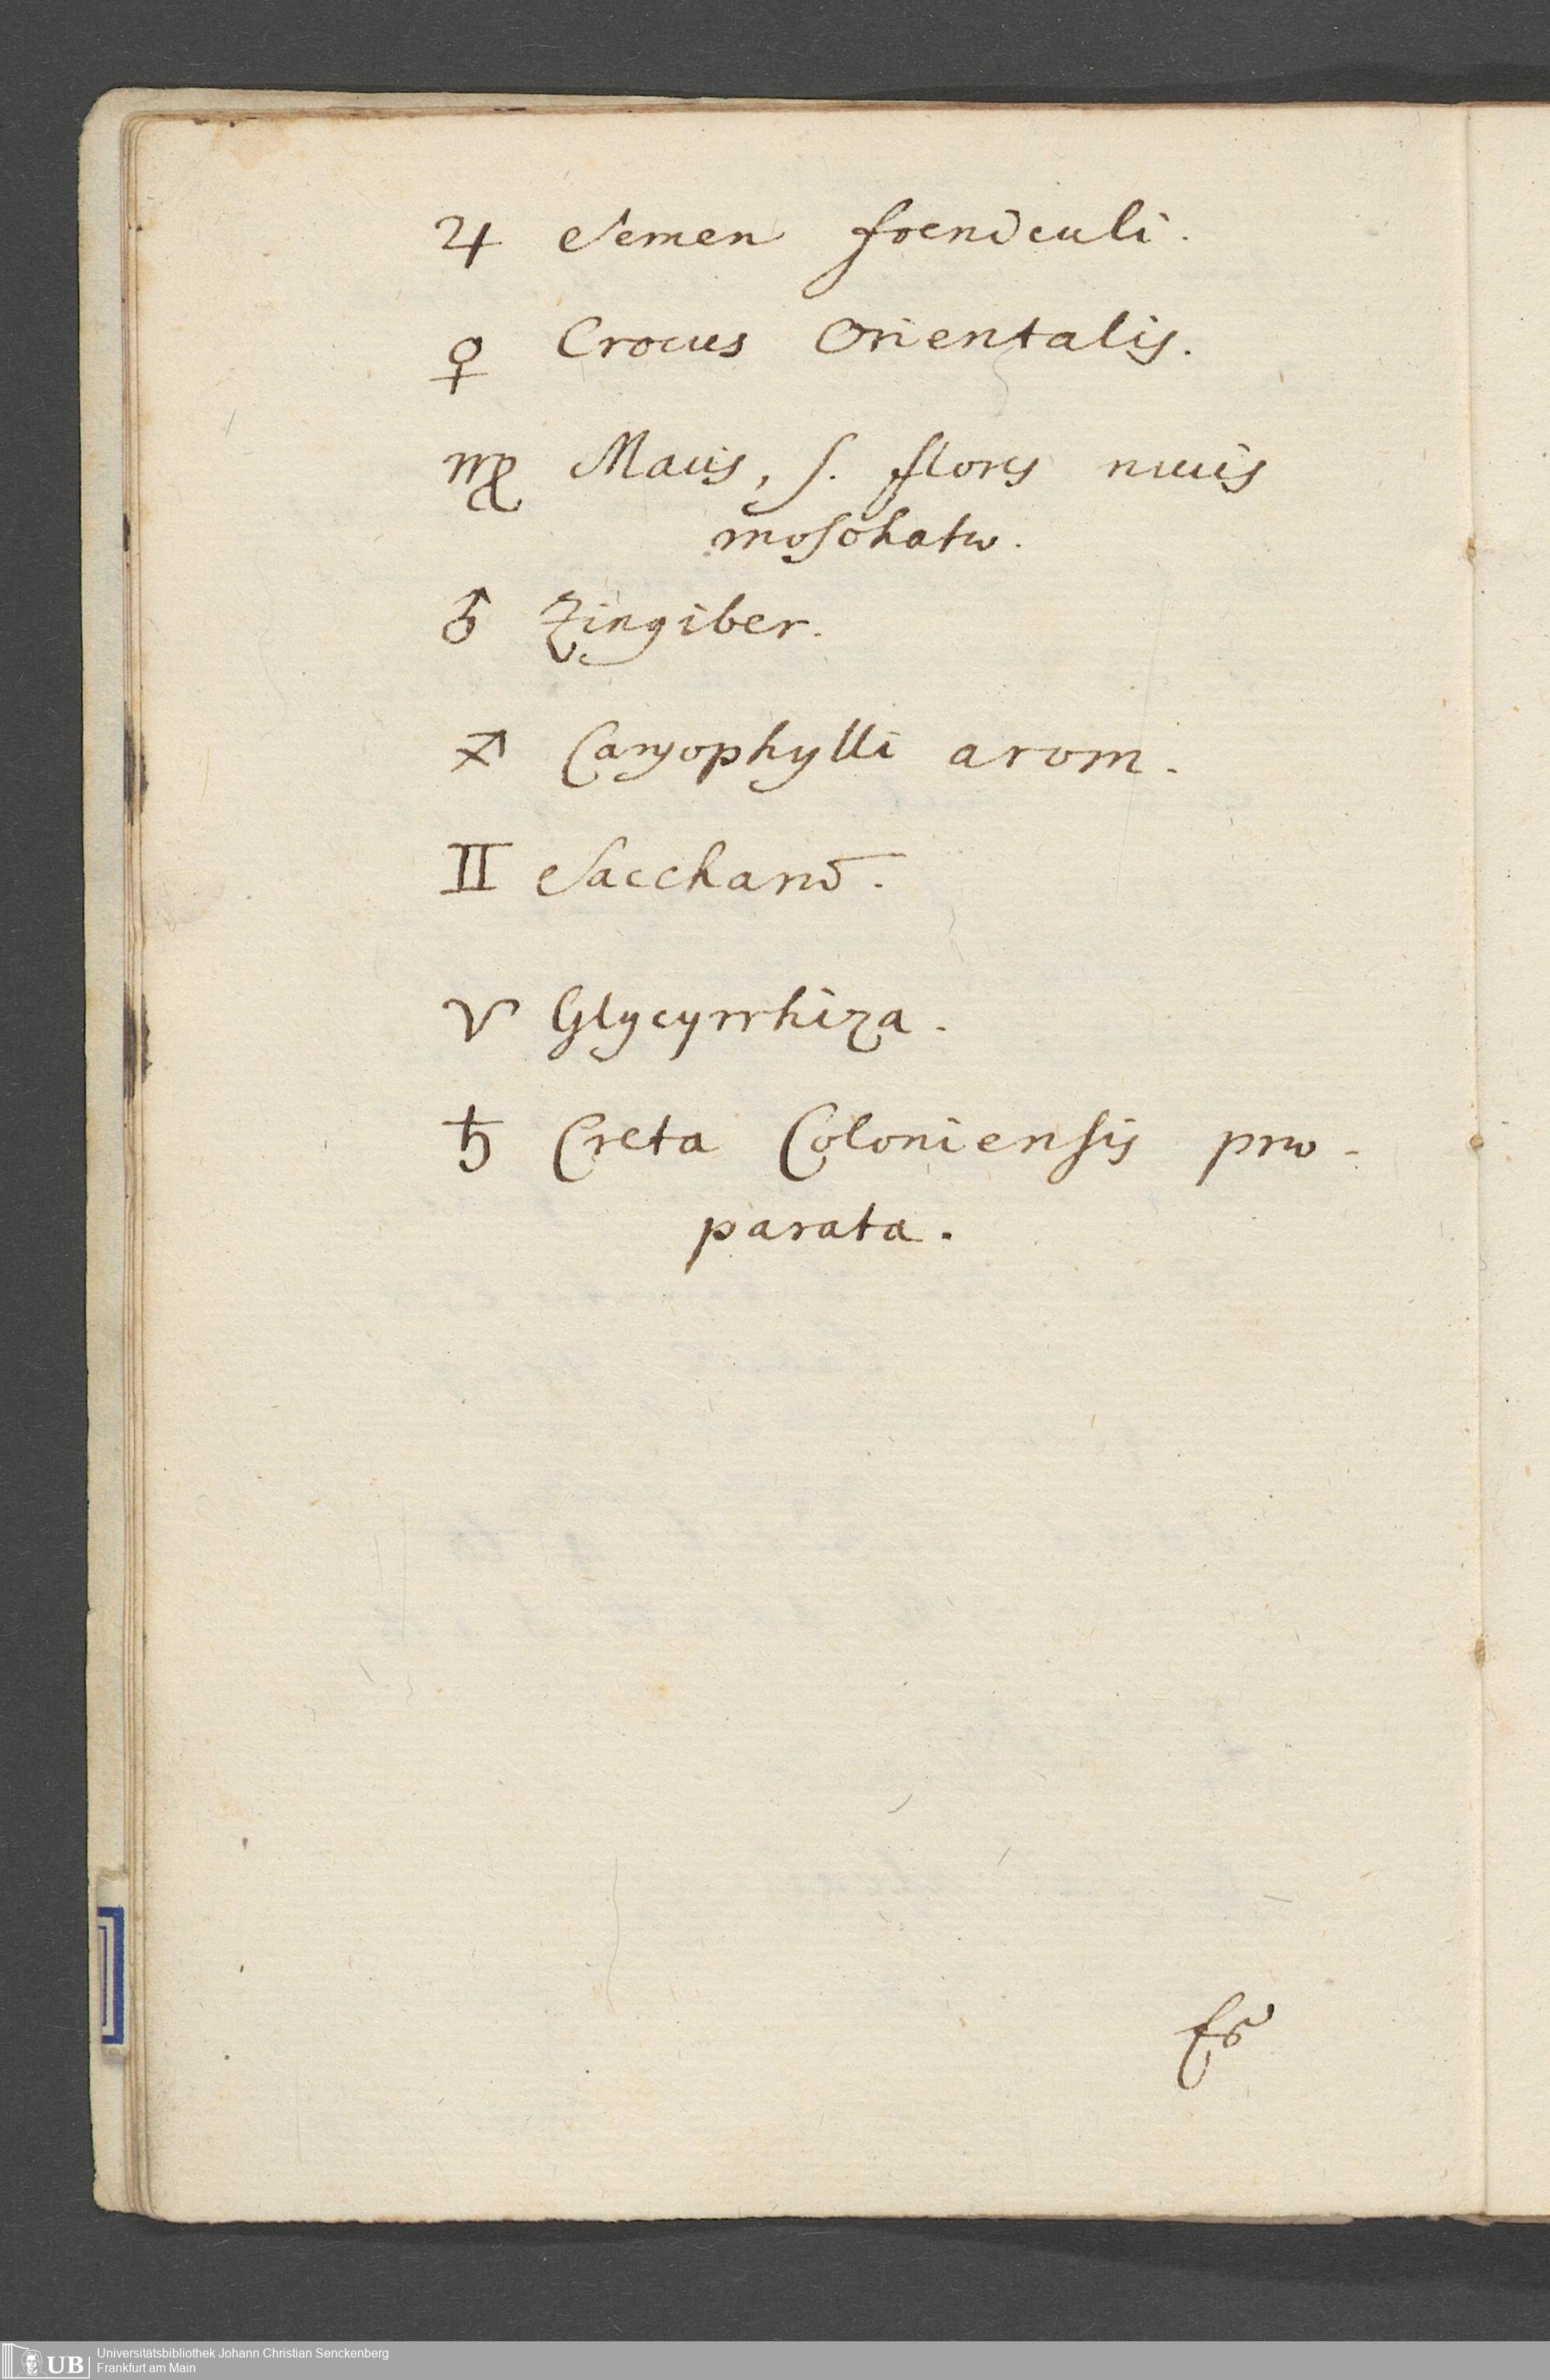 ♃ Semen foeniculi.
♀ Crocus Orientalis.
♍ Macis, s. flores nucis
moschatæ.
♂ Zingiber.
♐ Caryophylli arom.
♊ Saccharū.
♈ Glycyrrhiza.
♄ Creta Coloniensis præ-
parata.
UB Universitätsbibliothek Johann Christian Senckenberg
Frankfurt am Main